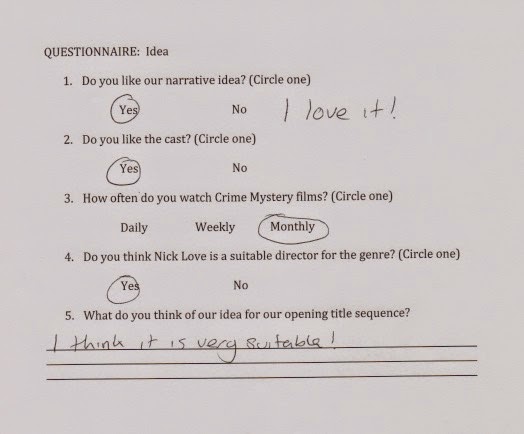 QUESTIONNAIRE: Idea
1. Do you like our narrative idea? (Circle one)
Yes No I love it!
2. Do you like the cast? (Circle one)
Yes No
3. How often do you watch Crime Mystery films? (Circle one)
Daily Weekly Monthly
4. Do you think Nick Love is a suitable director for the genre? (Circle one)
Yes No
5. What do you think of our idea for our opening title sequence?
I think it is very suitable!